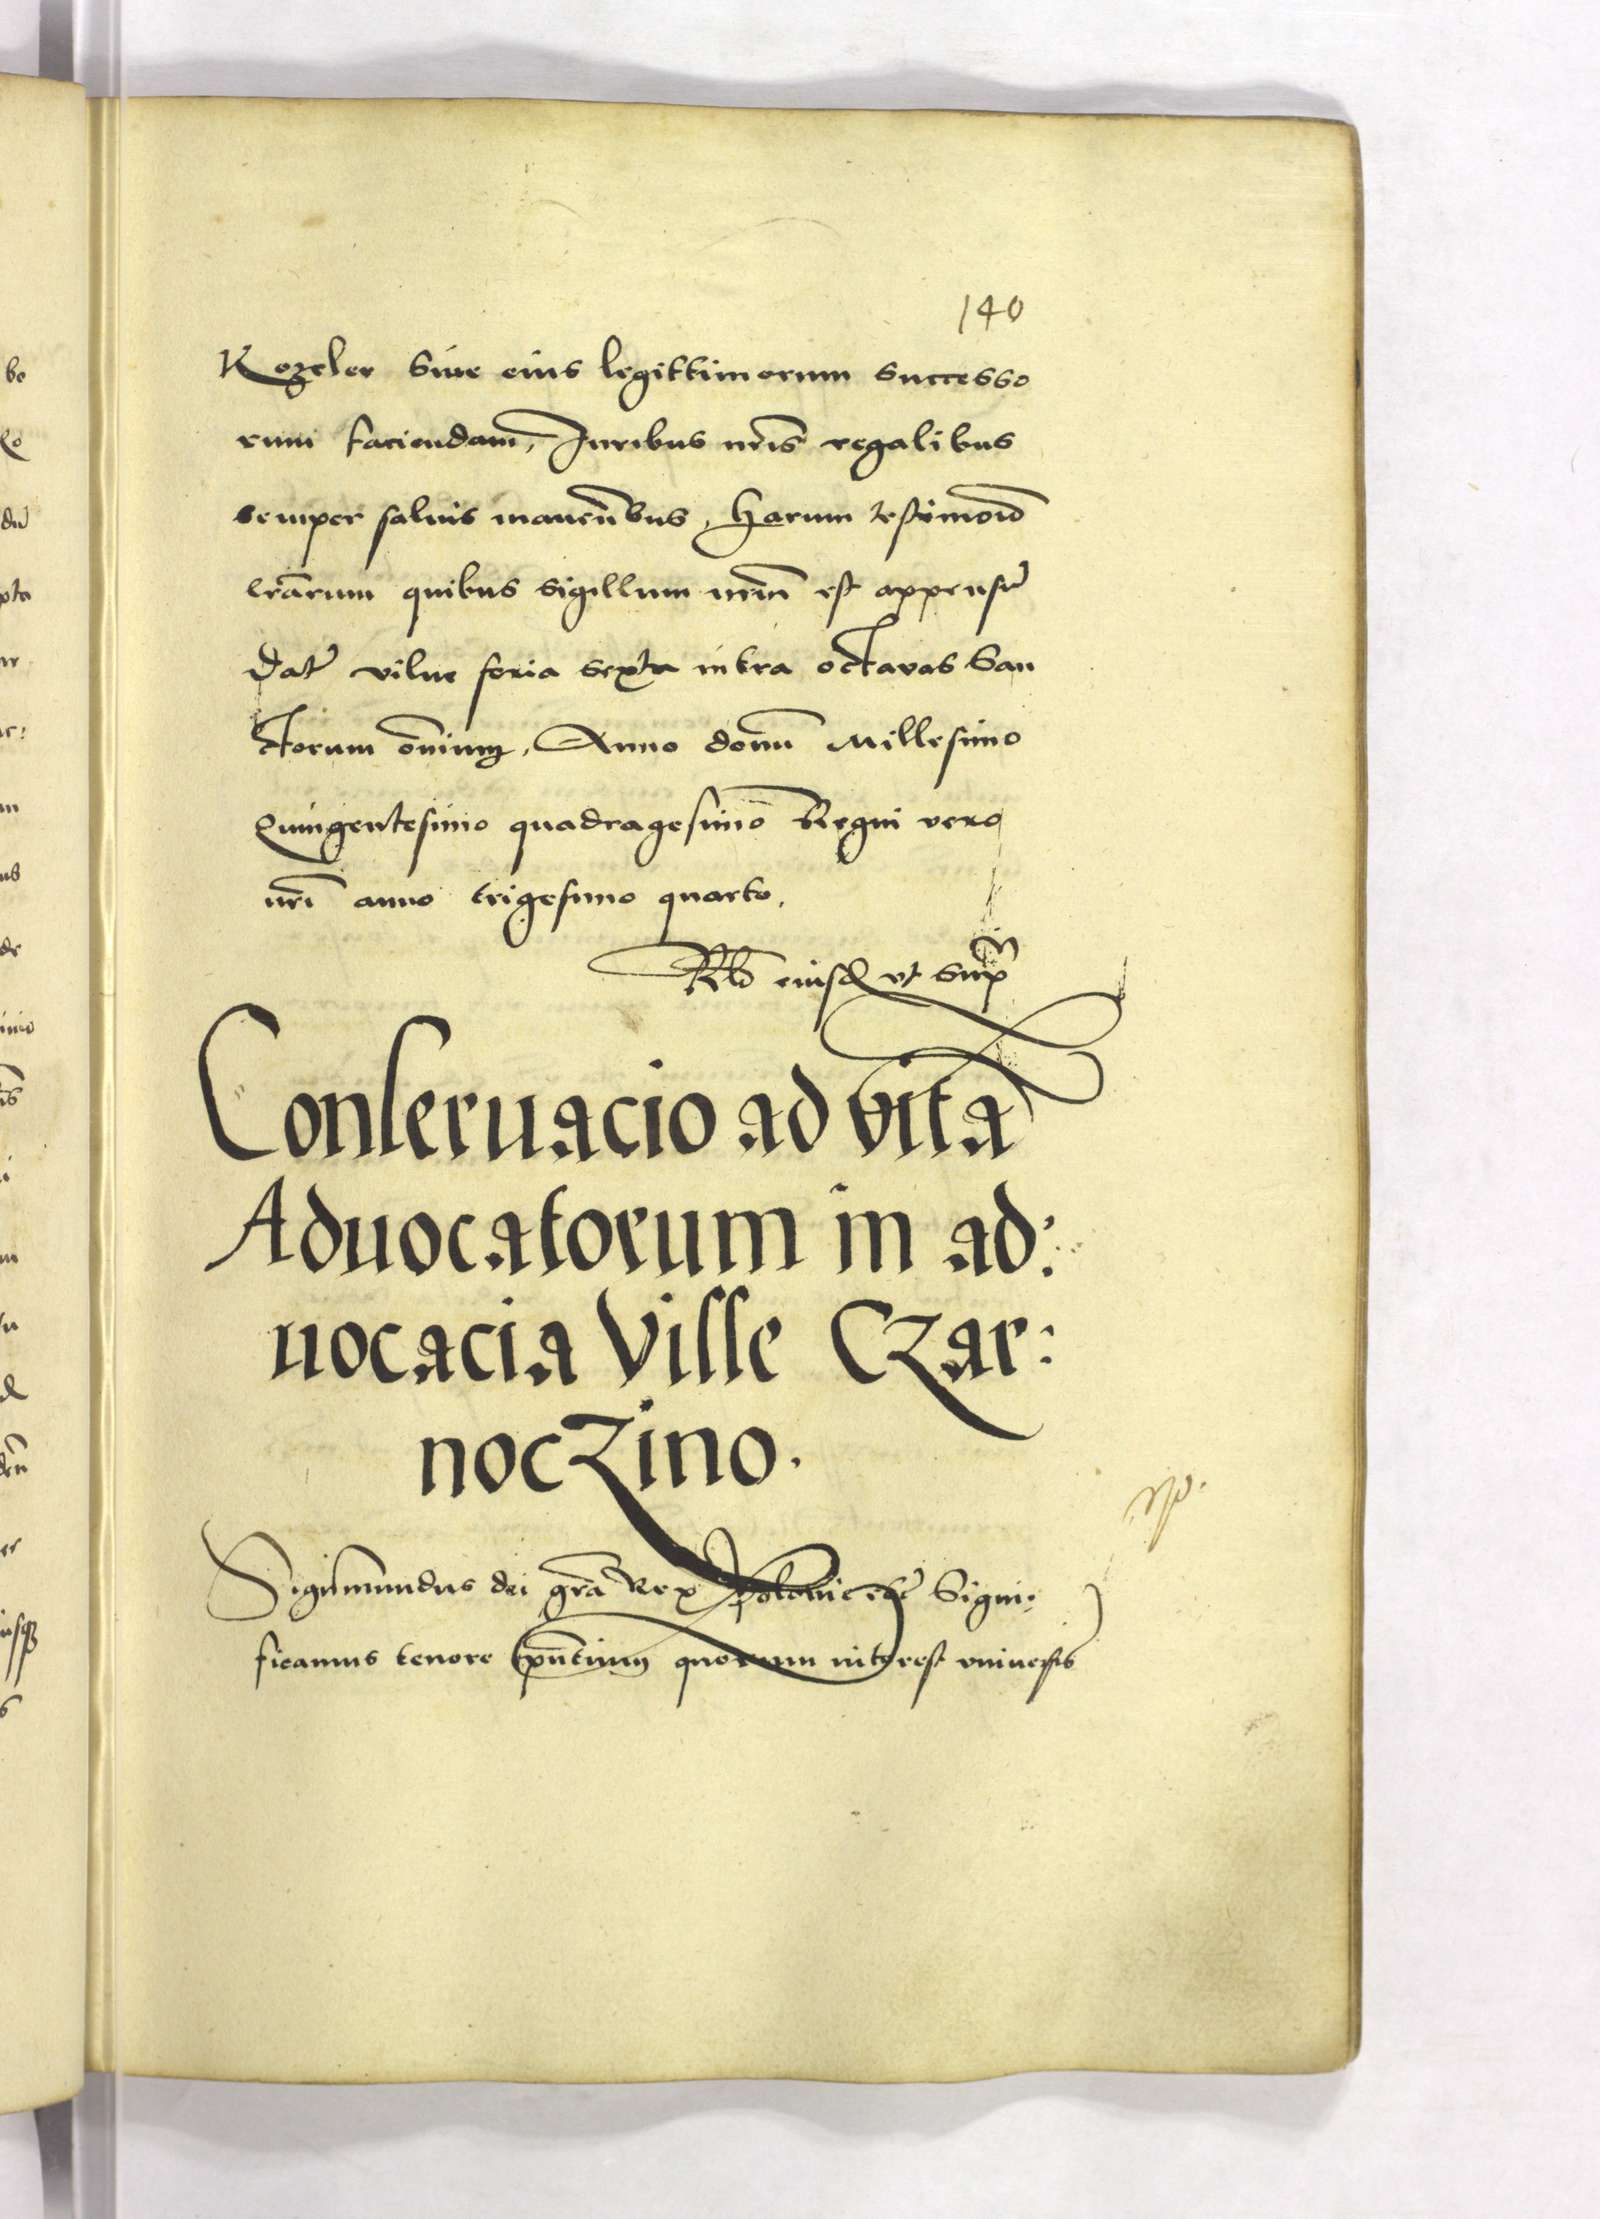 140
Kozeler Siue eius legittimorum successo
rum faciendam, Juribus nr̄is regalibus
semper saluis manen̄bus, Harum testimoīo
lrārum quibus sigillum nrūm est appensū
Datū vilne feria sexta intra octauas San
ctorum oīnium, Anno domī Millesimo
Quingentesimo quadragesimo Regni vero
nrī anno trigesimo quarto,
Rlō eiusd vt sup
Conseruacio ad vitā
Aduocatorum in ad:
uocacia Ville Czar:
noczino.
Sigismundus dei grā Rex Polonie etc Signi:
ficamus tenore pn̄tium quorum interest vniuersis